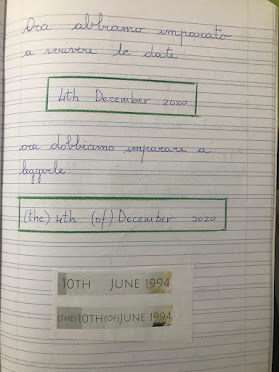 Ora abbiamo imparato
a scrivere le date
4th December 2020
ora dobbiamo imparare a
leggerle.
(the) 4th (of) December 2020
10TH JUNE 1994
(THE)10TH(OF)JUNE 1994